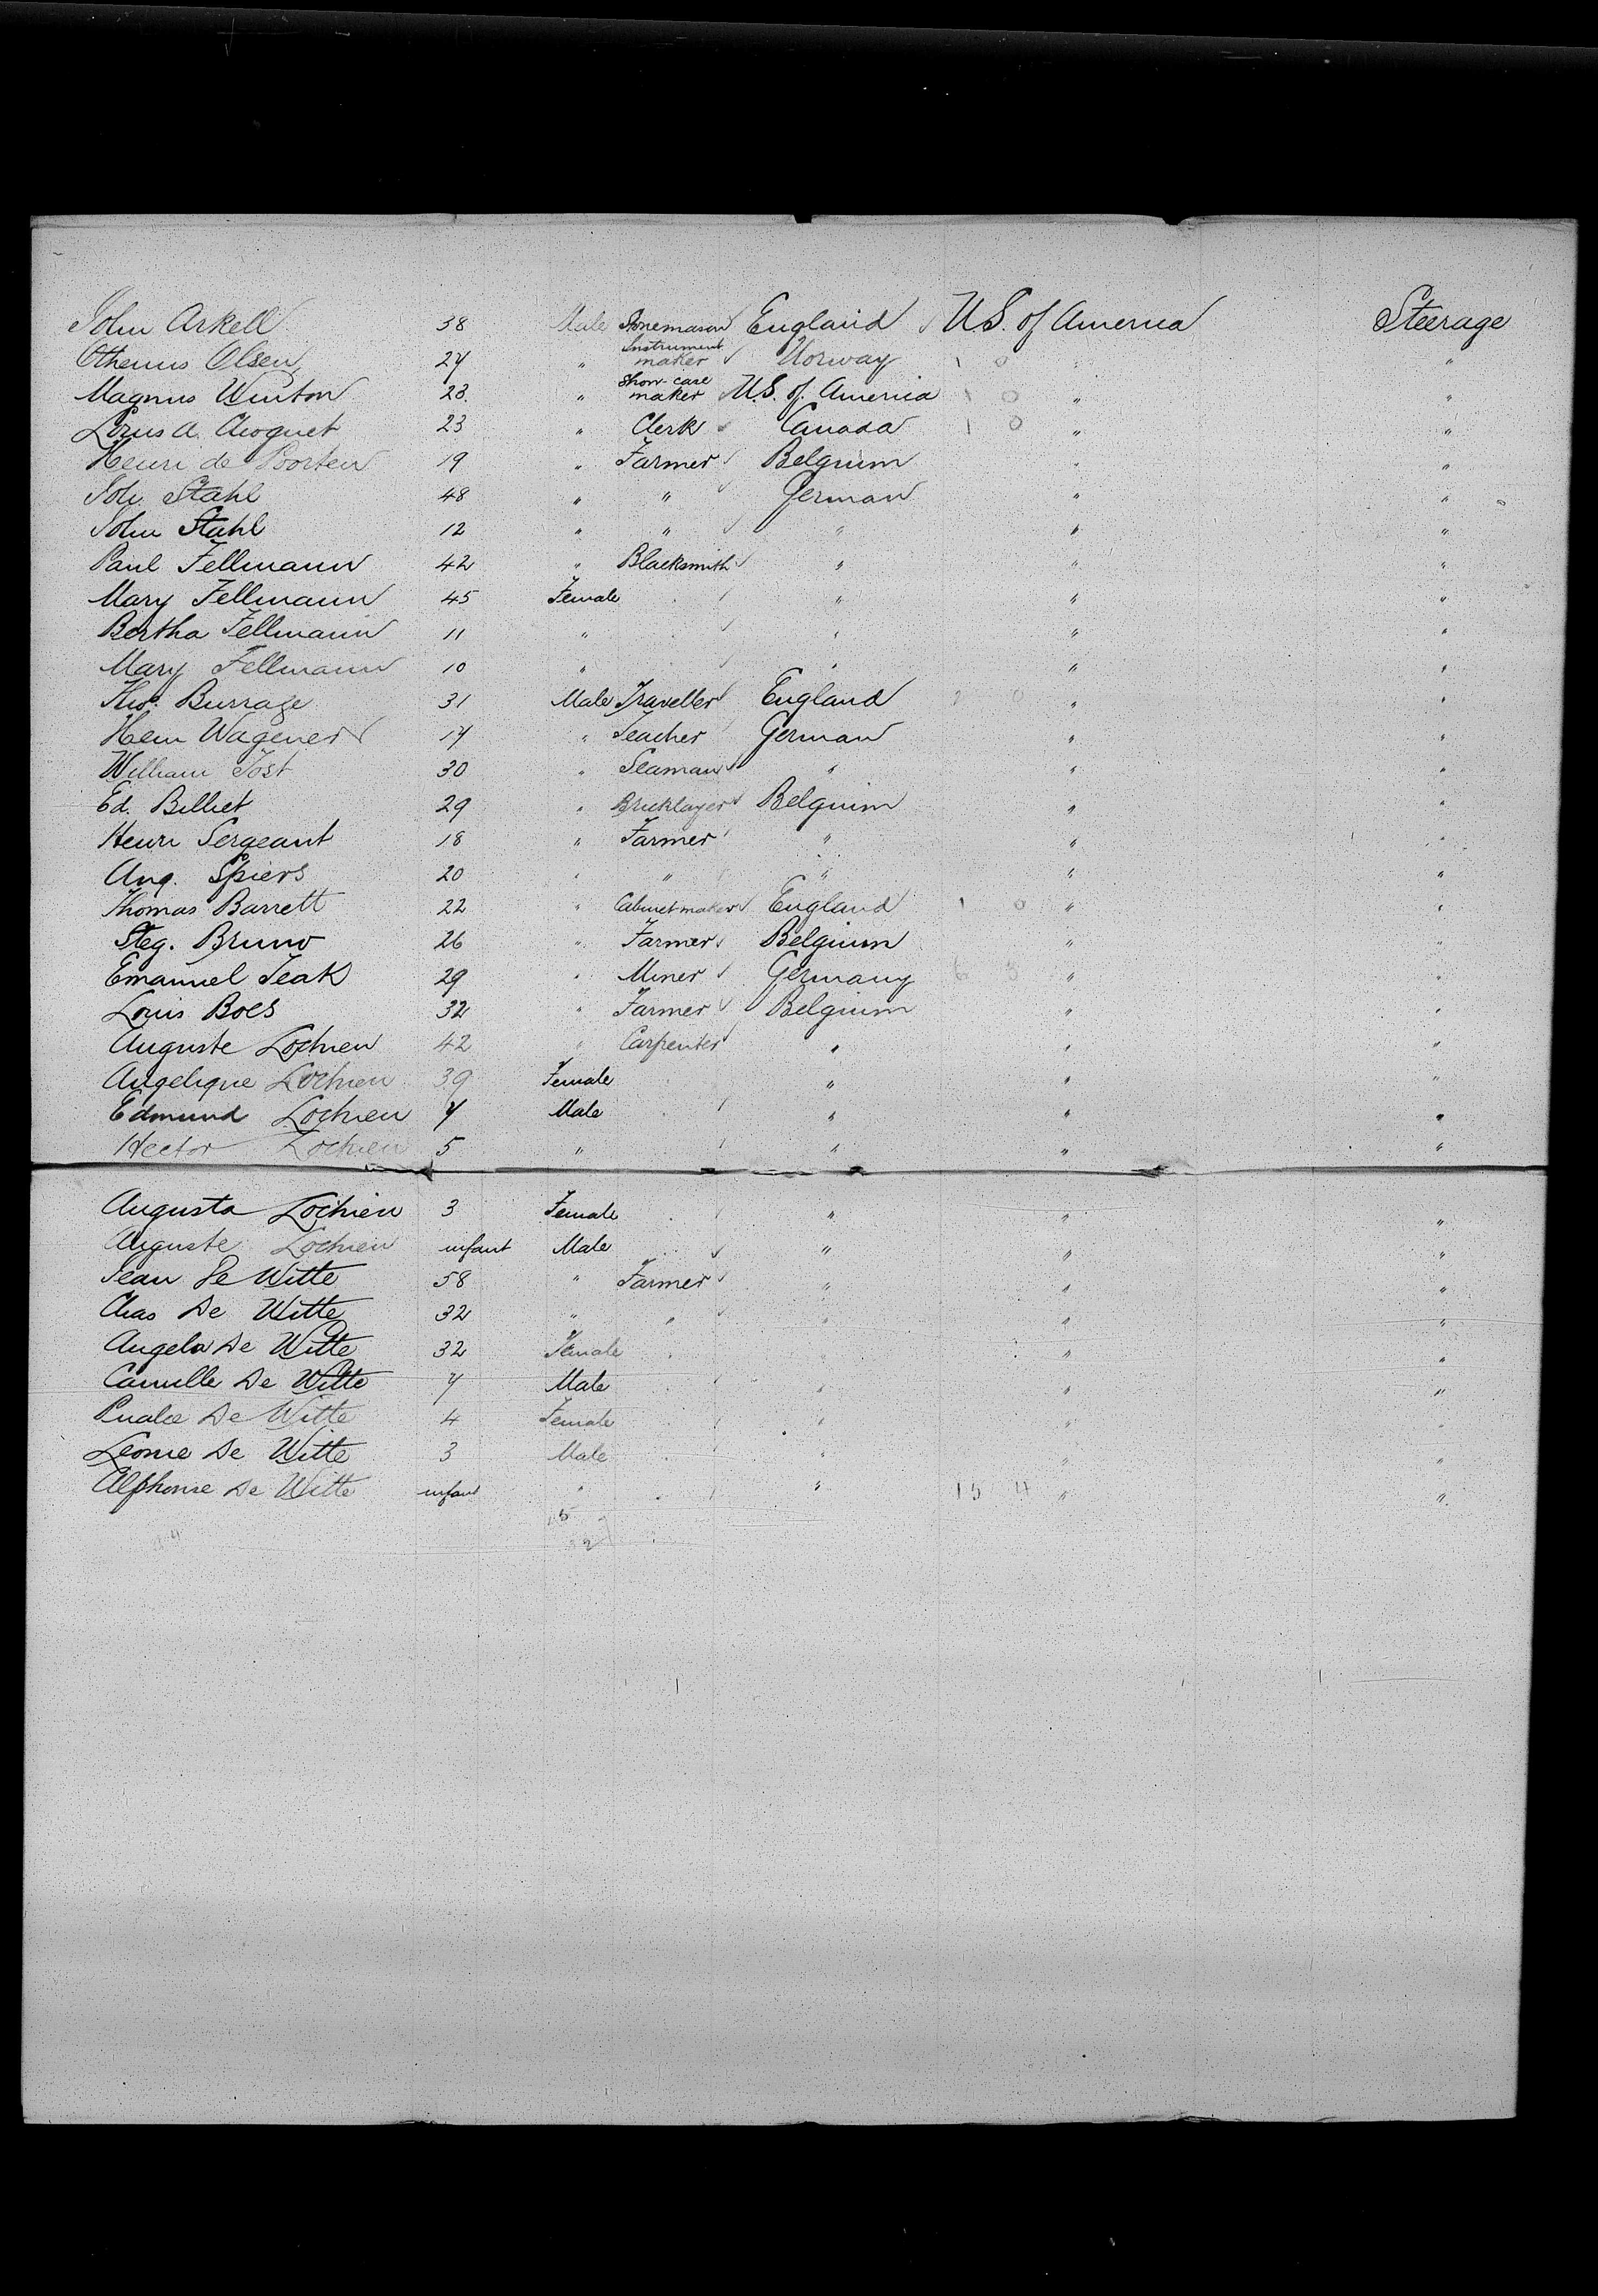 John Arkell 38 Male Stonemason England U.S. of America Steerage
Othenius Olsen 27 " Instrument maker Norway 1 0 " "
Magnus Winton 23. " Show-case maker U.S. of America 1 0 " "
Louis A. Choquet 23 " Clerk Canada 1 0 " "
Henri de Poorter 19 " Farmer Belgium " "
Joh. Stahl 48 " " German " "
John Stahl 12 " " " " "
Paul Fellmann 42 " Blacksmith " " "
Mary Fellmann 45 Female " " "
Bertha Fellmann 11 " " " "
Mary Fellmann 10 " " " "
Thos. Burrage 31 Male Traveller England " "
Hein Wagener 17 " Teacher German " "
William Jost 30 " Seaman " " "
Ed. Billiet 29 " Bricklayer Belguim " "
Henri Sergeant 18 " Farmer " " "
Aug. Spiers 20 " " " " "
Thomas Barrett 22 " Cabinetmaker England 1 0 " "
Steg. Bruno 26 " Farmer Belgium " "
Emanuel Teak 29 " Miner Germany 6 3 " "
Louis Boes 32 " Farmer Belgium " "
Auguste Lochien 42 " Carpenter " " "
Angelique Lochien 39 Female " " "
Edmund Lochien 7 Male " " "
Hector Lochien 5 " " " "
Augusta Lochien 3 Female " " "
Auguste Lochien infant Male " " "
Jean De Witte 58 " Farmer " " "
Chas De Witte 32 " " " " "
Angela De Witte 32 Female " " "
Camille De Witte 7 Male " " "
De Witte 4 Female " " "
Leonie De Witte 3 Male " " "
Alphonse De Witte infant " " 15 4 " "